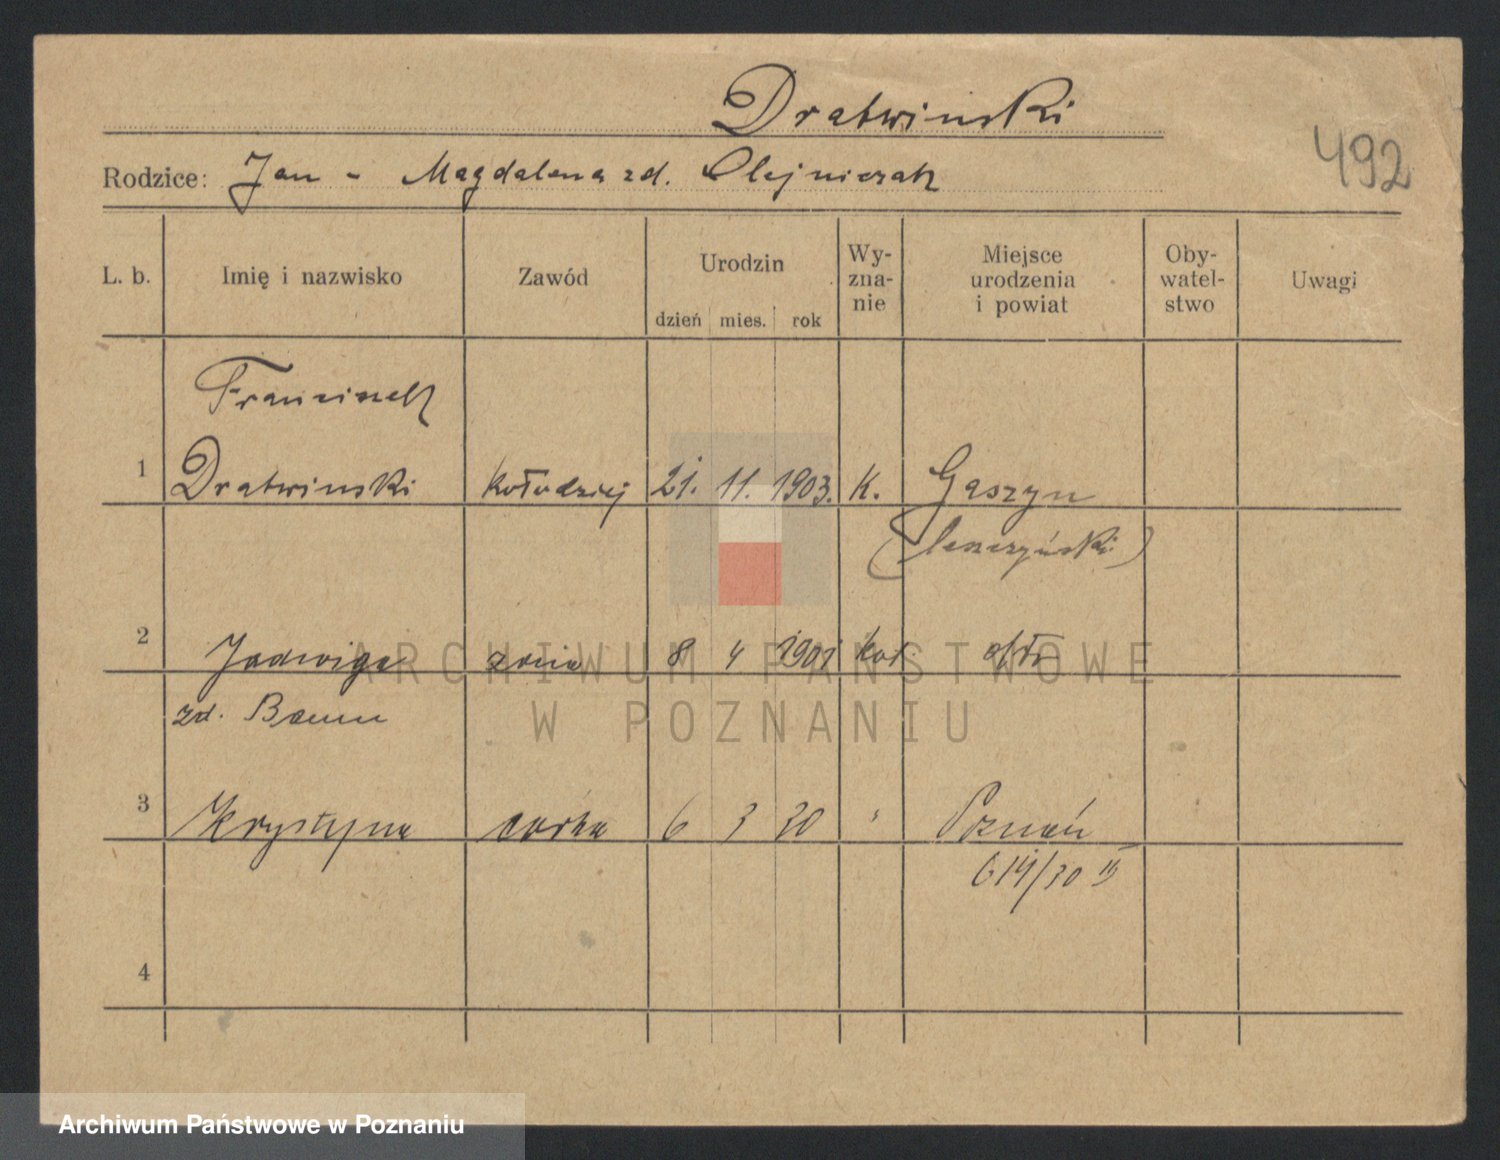 Dratwinski
492
Rodzice: Jan - Magdalena zd. Olejniczak
L. b. Imię i nazwisko Zawód Urodzin dzień mies. rok Wy-zna-nie Miejsce urodzenia i powiat Oby-watel-stwo Uwagi
Franciszek
1 Dratwinski kołodziej 21. 11. 1903. K. Gaszyn
(leszczyński)
2 Jadwiga żona 8 4 1901 kat.
zd. Baum
3 Krystyna córka 6 3 30 " Poznań
614/30 IV
4
ARCHIWUM PAŃSTWOWE
W POZNANIU
Archiwum Państwowe w Poznaniu